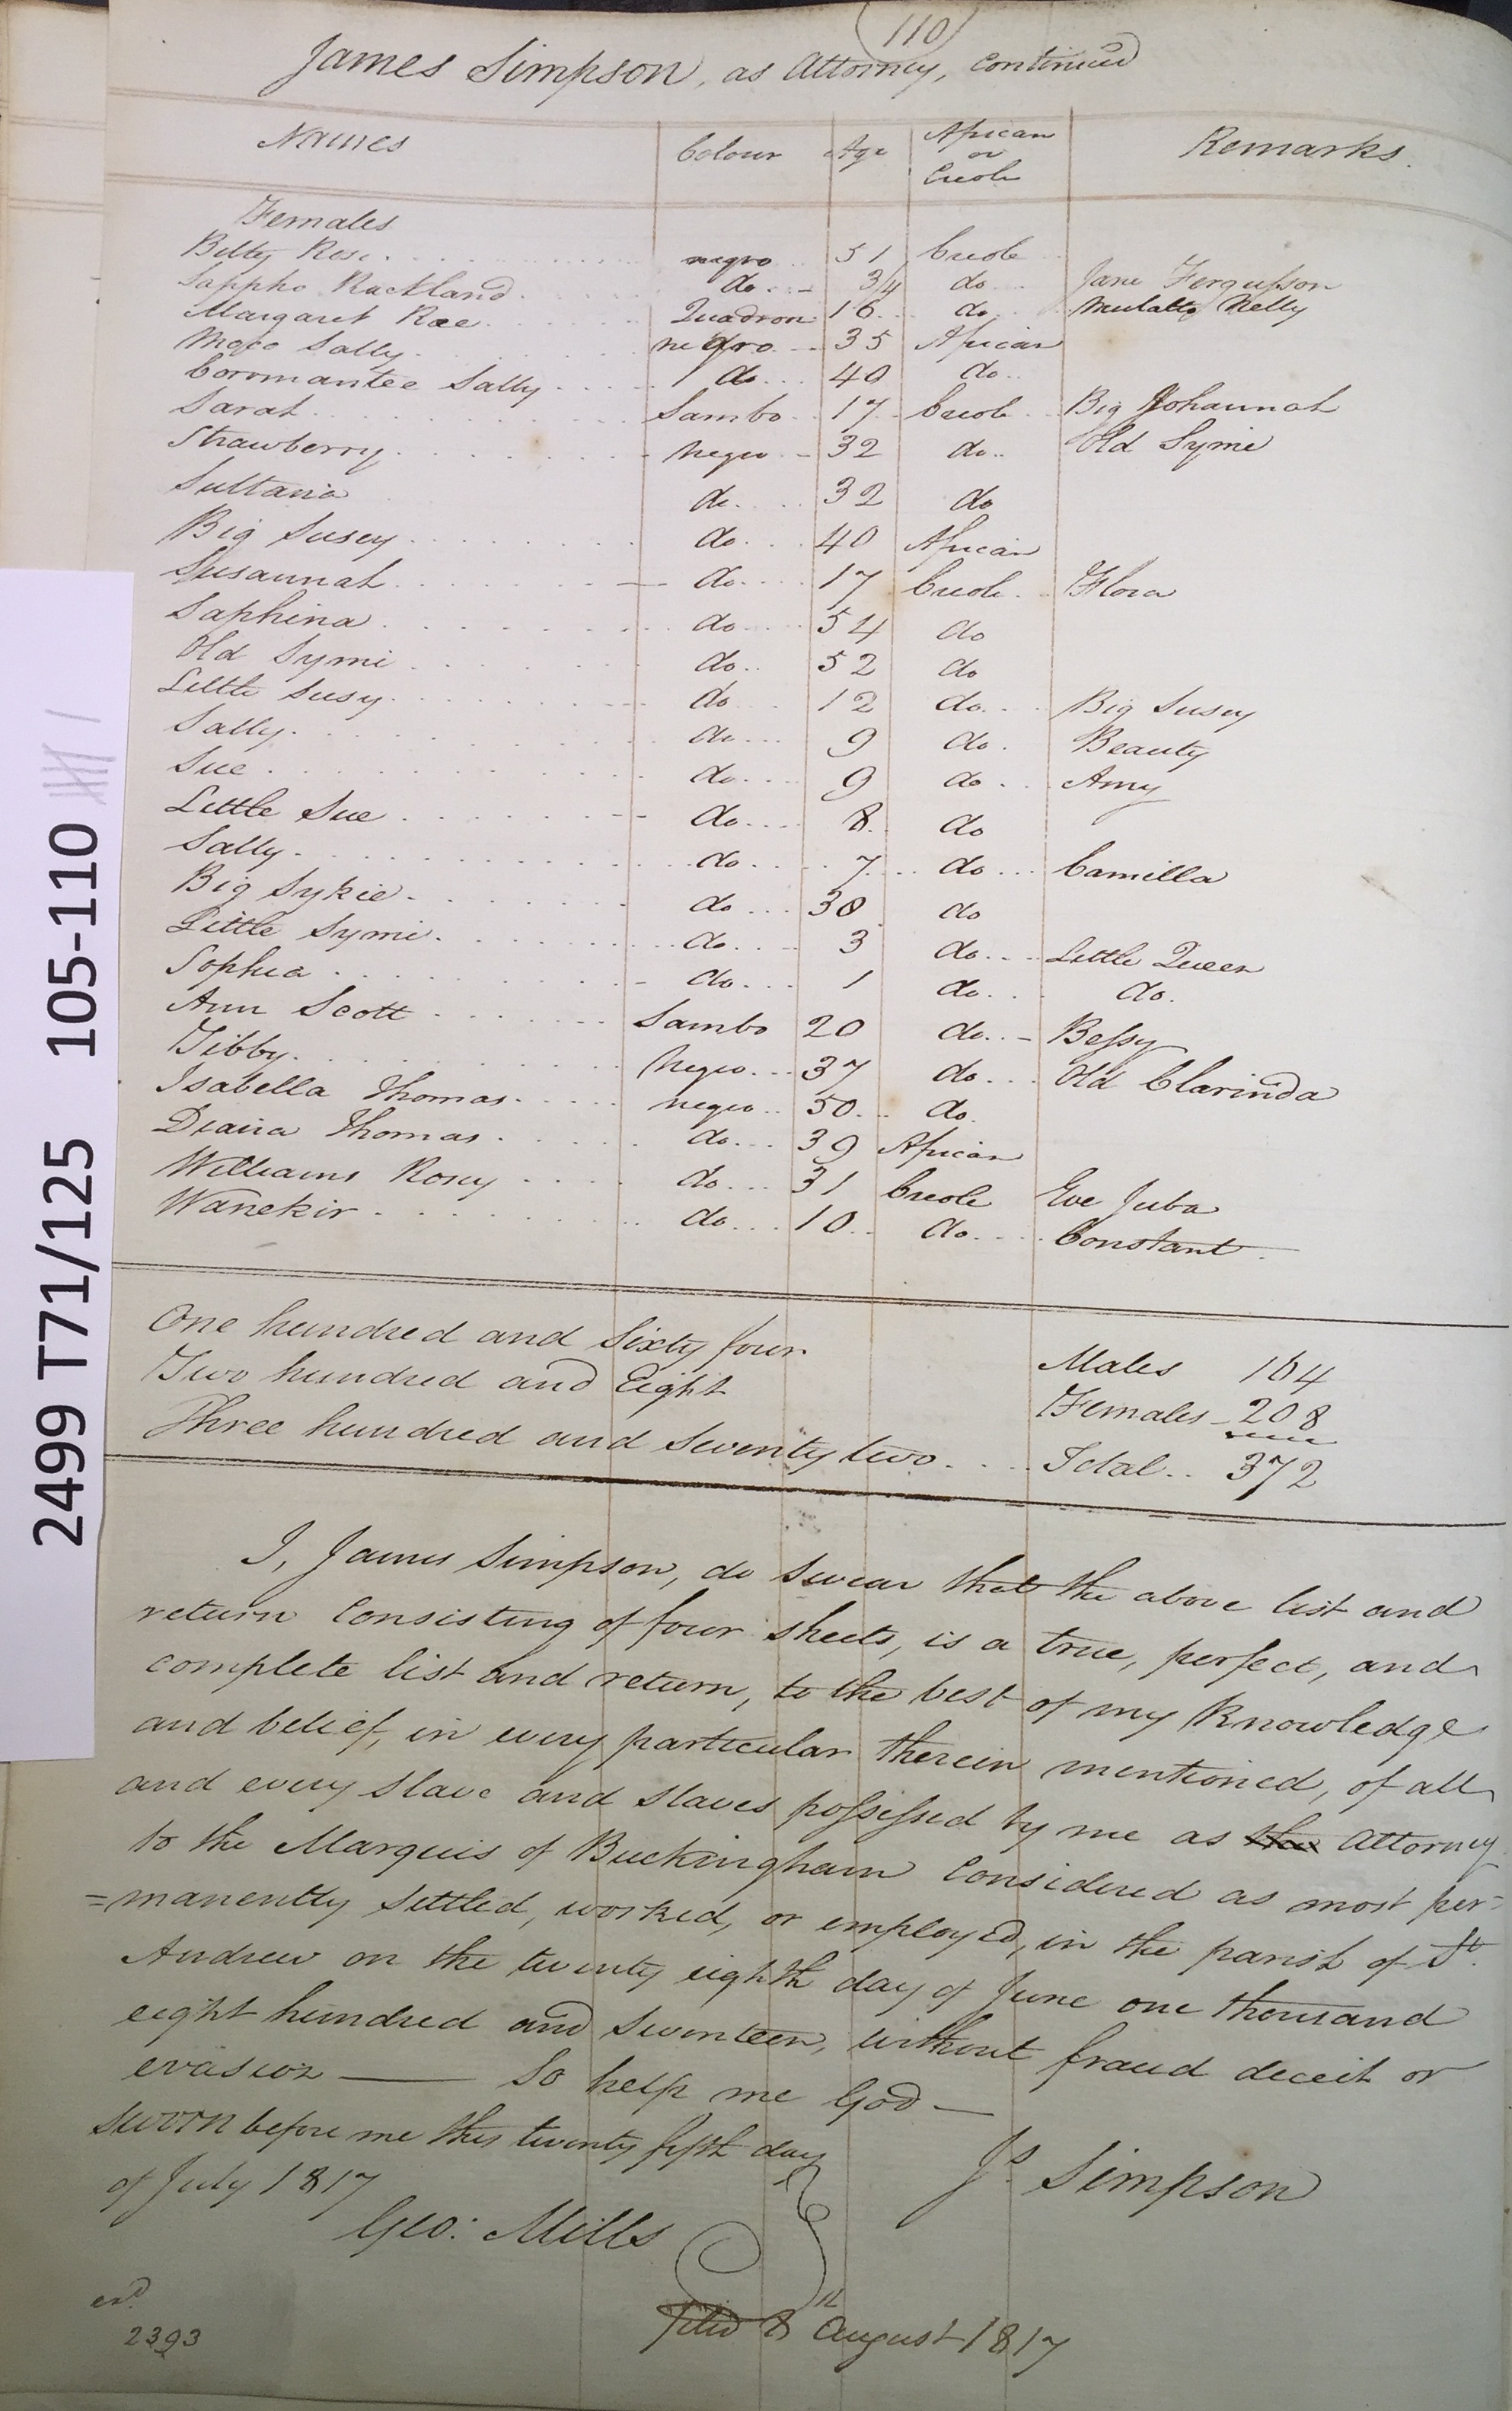 110
James Simpson, as Attorney, Continued
Names Colour Age African or Creole Remarks.
Females
Betty Rose negro 51 Creole
Sappho Rackland do 34 do Jane Fergusson
Margaret Rae Quadroon 16 do Mulatto Nelly
Moco Sally negro 35 African
Corromantee Sally do 40 do
Sarah Sambo 17 Creole Big Johannah
Strawberry negro 32 do Old Symie
Sultana do 32 do
Big Susey do 40 African
Susannah do 17 Creole Flora
Saphina do 54 do
Old Symi do 52 do
Little Susy do 12 do Big Susey
Sally do 9 do Beauty
Sue do 9 do Amy
Little Sue do 8 do
Sally do 7 do Camilla
Big Sykie do 30 do
Little Symi do 3 do Little Queen
Sophia do 1 do do.
Ann Scott Sambo 20 do Bessy
Tibby negro 37 do Old Clarinda
Isabella Thomas negro 50 do
Diana Thomas do 39 African
Williams Rosey do 31 Creole Eve Juba
Wanekir do 10 do Constant
One hundred and Sixty four Males 164
Two hundred and Eight Females 208
Three hundred and Seventy two Total 372
I, James Simpson, do Swear that the above list and
return Consisting of four sheets, is a true, perfect, and
complete list and return, to the best of my Knowledge
and belief, in every particular therein mentioned, of all
and every slave and slaves possessed by me as the Attorney
to the Marquis of Buckingham Considered as most per=
=manently settled, worked, or employed, in the parish of St.
Andrew on the twenty eighth day of June one thousand
eight hundred and Seventeen, without fraud deceit or
evasion — So help me God —
Sworn before me this twenty fifth day
of July 1817
Js. Simpson
Geo: Mills
filed 8 August 1817
exd.
2393
2499 T71/125 105-110